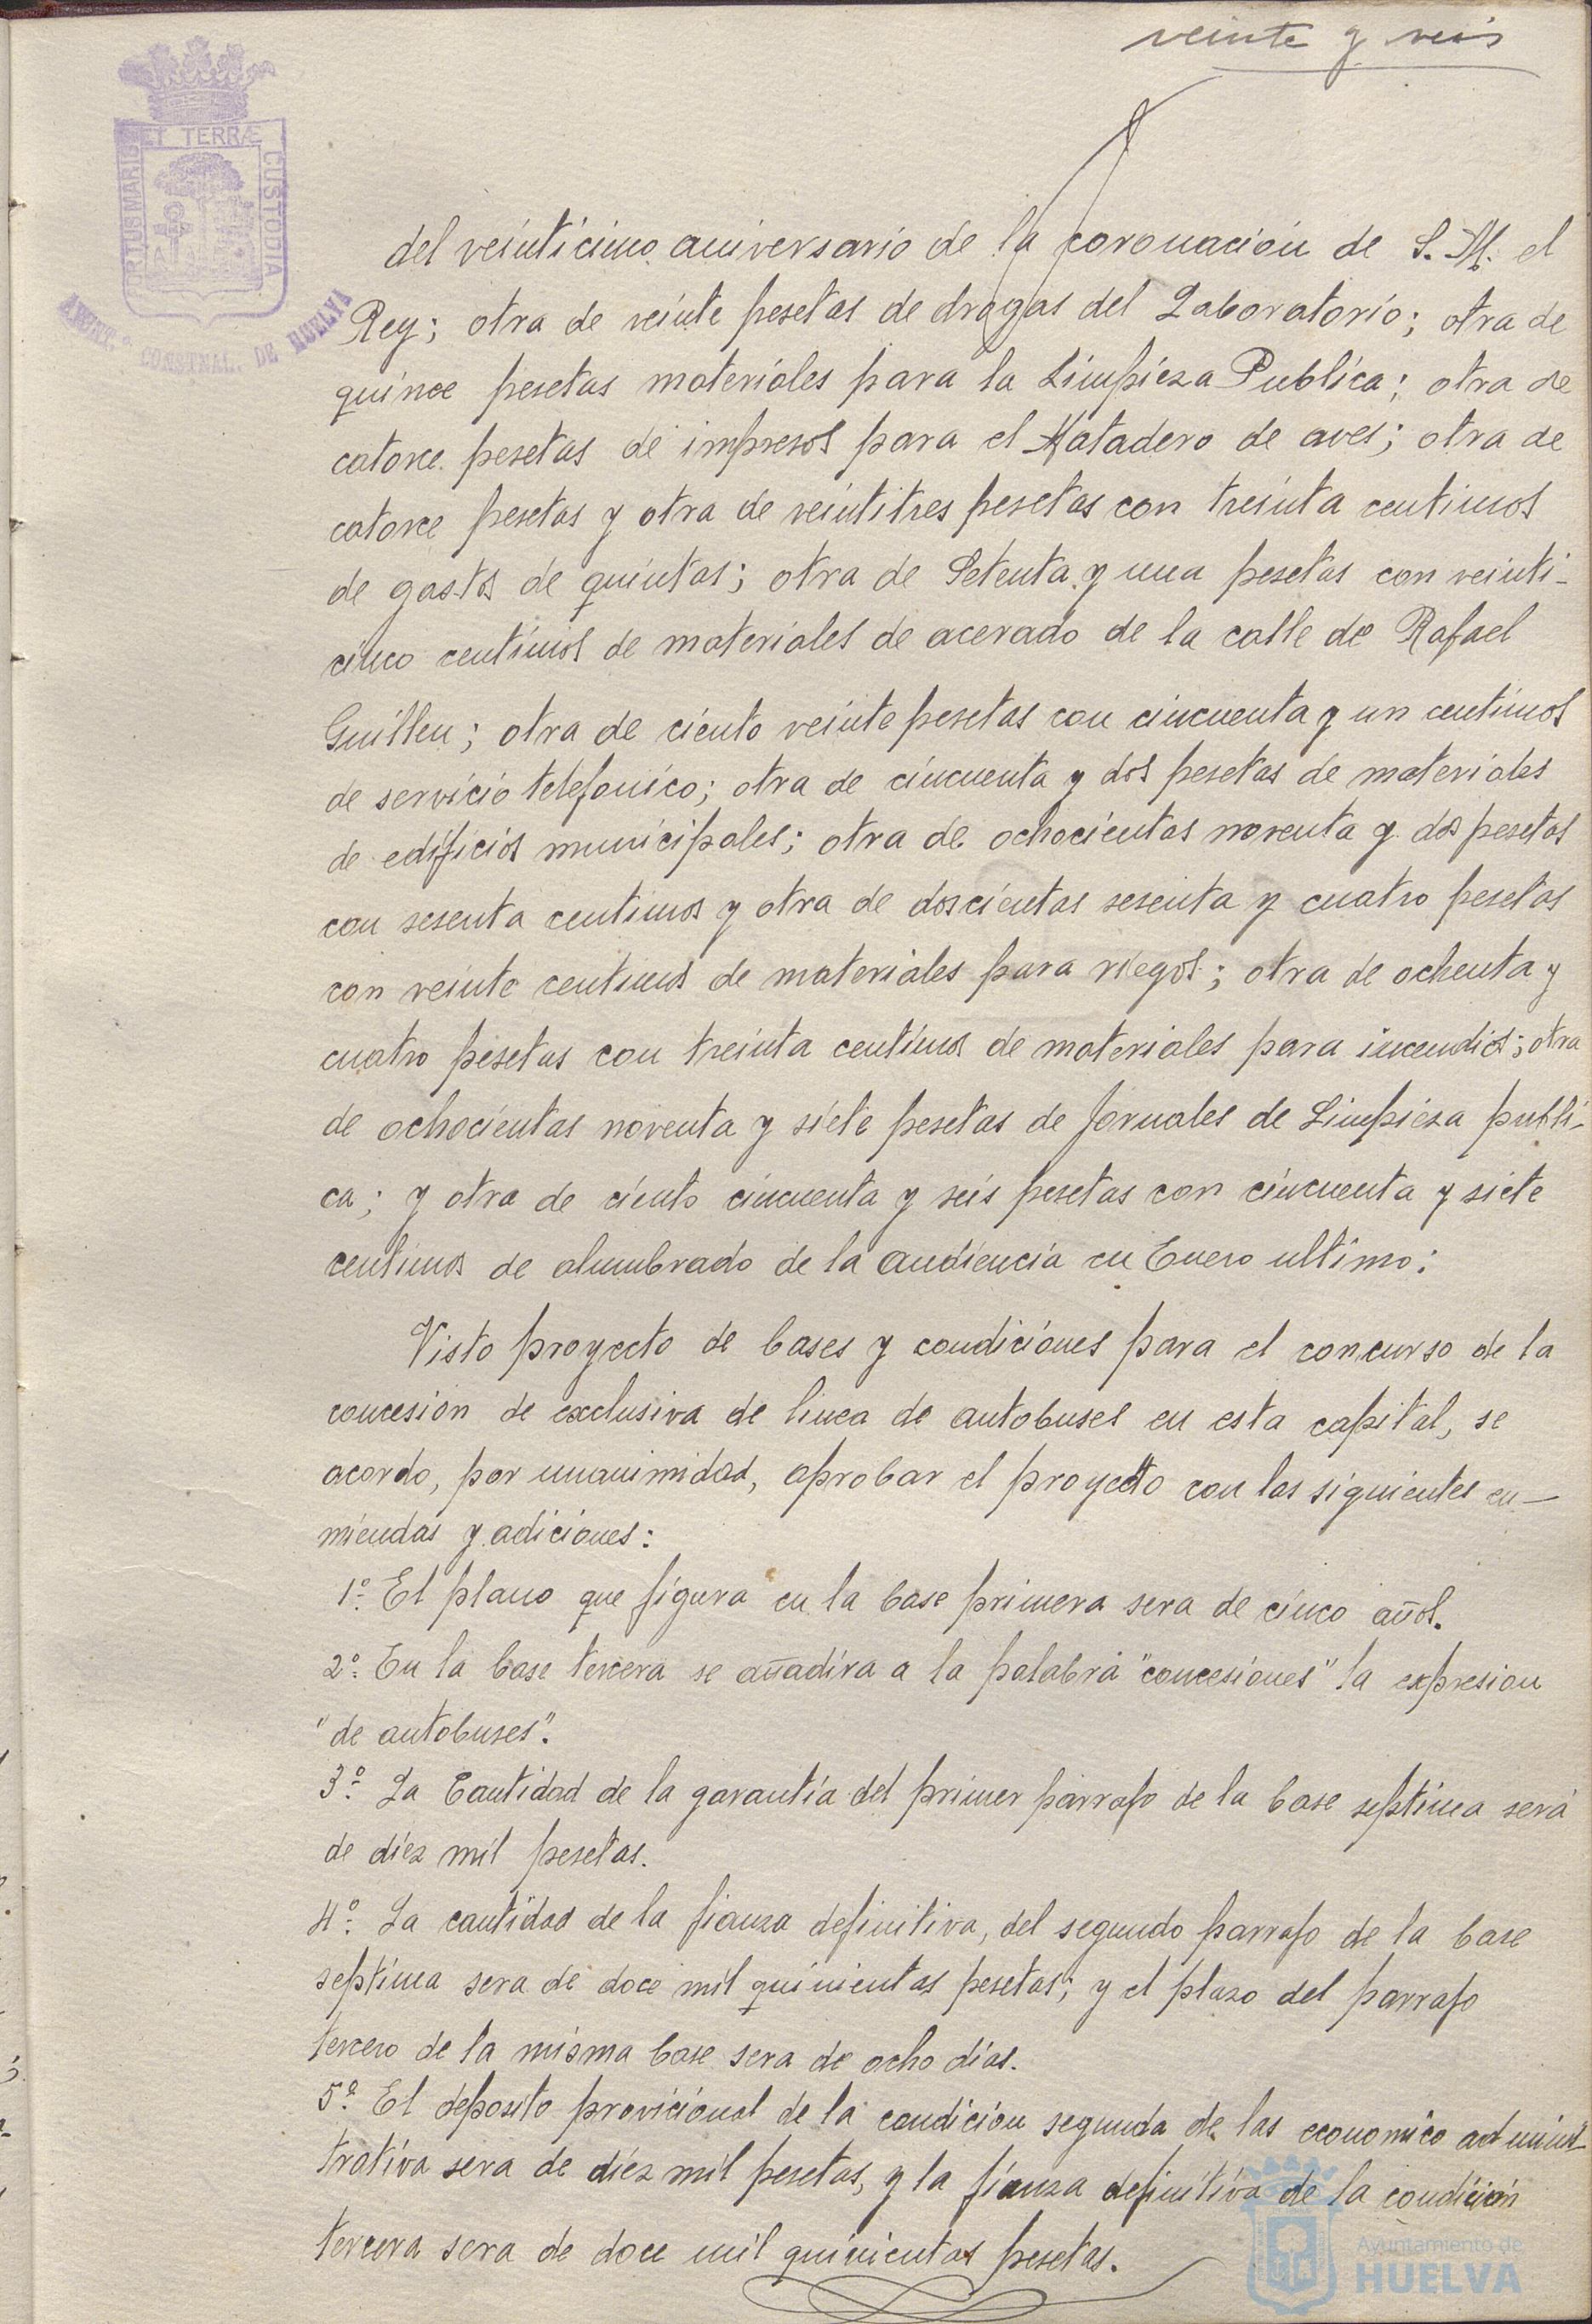 veinte y seis
PORTUS MARIS ET TERRÆ CUSTODIA
AYUNT.º CONSTNAL. DE HUELVA
del veinticinco aniversario de la coronación de S. M. el
Rey; otra de veinte pesetas de drogas del Laboratorio; otra de
quince pesetas materiales para la Limpieza Publica; otra de
catorce pesetas de impresos para el Matadero de aves; otra de
catorce pesetas y otra de veintitres pesetas con treinta centimos
de gastos de quintas; otra de Setenta y una pesetas con veinti-
cinco centimos de materiales de acerado de la calle de Rafael
Guillen; otra de ciento veinte pesetas con cincuenta y un centimos
de servicio telefonico; otra de cincuenta y dos pesetas de materiales
de edificios municipales; otra de ochocientas noventa y dos pesetas
con sesenta centimos y otra de doscientas sesenta y cuatro pesetas
con veinte centimos de materiales para riegos; otra de ochenta y
cuatro pesetas con treinta centimos de materiales para incendios; otra
de ochocientas noventa y siete pesetas de Jornales de Limpieza publi-
ca; y otra de ciento cincuenta y seis pesetas con cincuenta y siete
centimos de alumbrado de la audiencia en Enero ultimo:
Visto proyecto de bases y condiciones para el concurso de la
concesion de exclusiva de linea de autobuses en esta capital, se
acordo, por unanimidad, aprobar el proyecto con las siguientes en-
miendas y adiciones:
1º. El plano que figura en la base primera sera de cinco años.
2º. En la base tercera se añadira a la palabra "concesiones" la expresion
"de autobuses".
3º. La Cantidad de la garantía del primer parrafo de la base septima será
de diez mil pesetas.
4º. La cantidad de la fianza definitiva, del segundo parrafo de la base
septima sera de doce mil quinientas pesetas; y el plazo del parrafo
tercero de la misma base sera de ocho días.
5º. El deposito provicional de la condicion segunda de las economico adminis-
trativa sera de diez mil pesetas, y la fianza definitiva de la condición
tercera sera de doce mil quinientas pesetas.
Ayuntamiento de
HUELVA